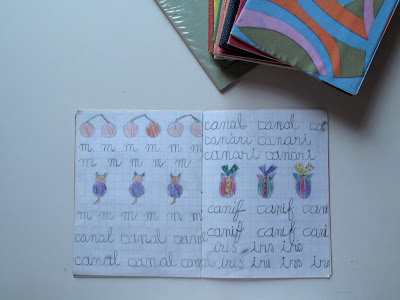 m m m m m m
m m m m m m
m m m m m m
canal canal canal
canal canal canal
canal canal ca
canari canari
canari canari
canif canif cani
canif canif cani
iris iris iris
iris iris iris iris